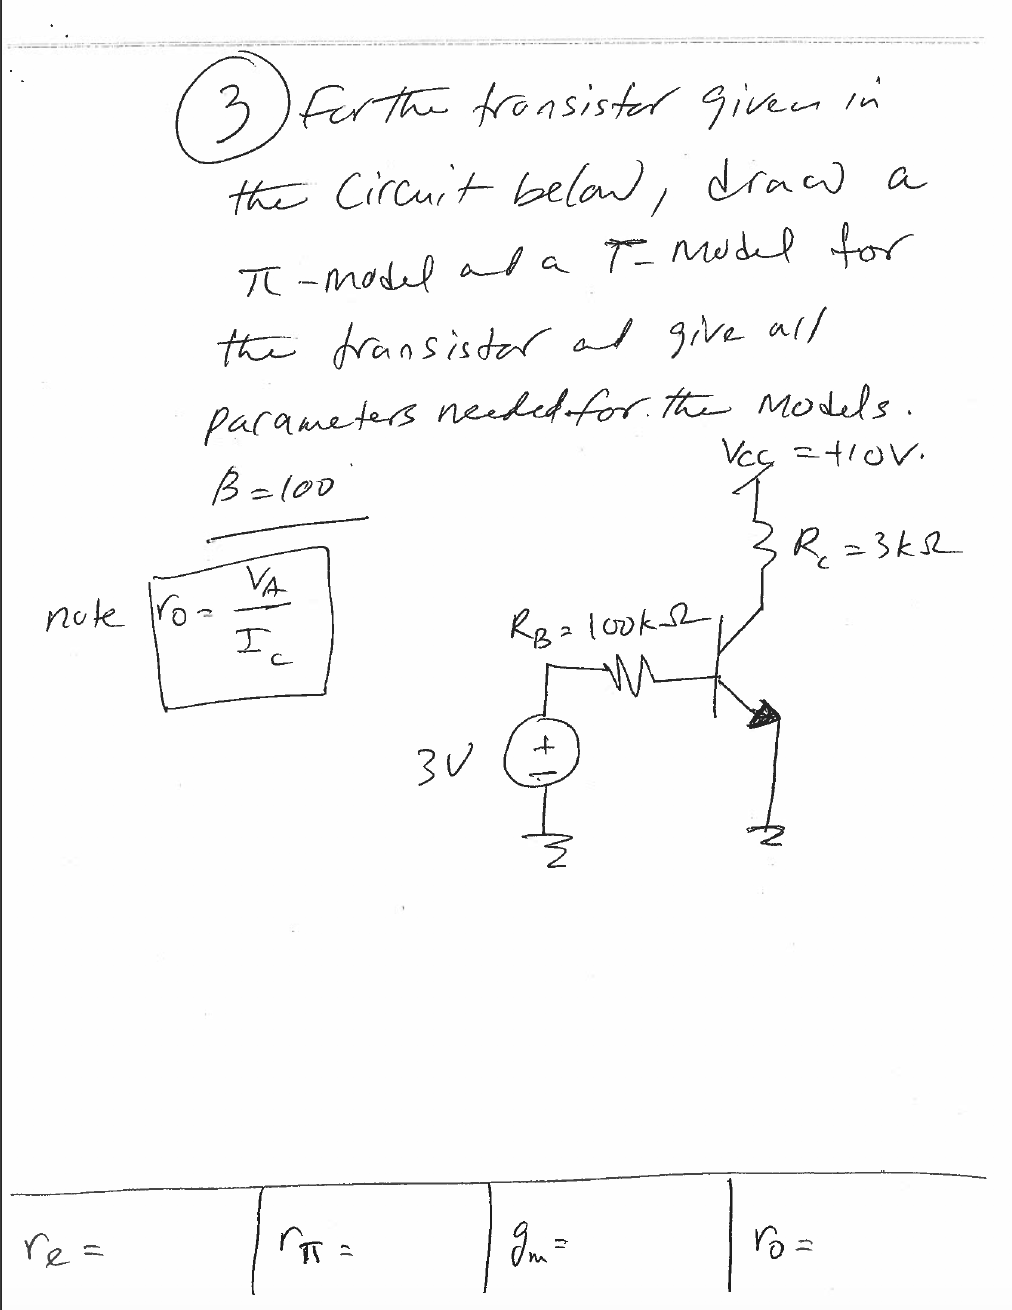 3 For the transistor given in
the Circuit below, draw a
π-model and a T-Model for
the transistor and give all
parameters needed for the Models.
Vcc = +10V.
β=100
Rc = 3kΩ
note ro = VA
Ic
RB = 100kΩ
3V
+
-
re =
rπ =
gm =
ro =